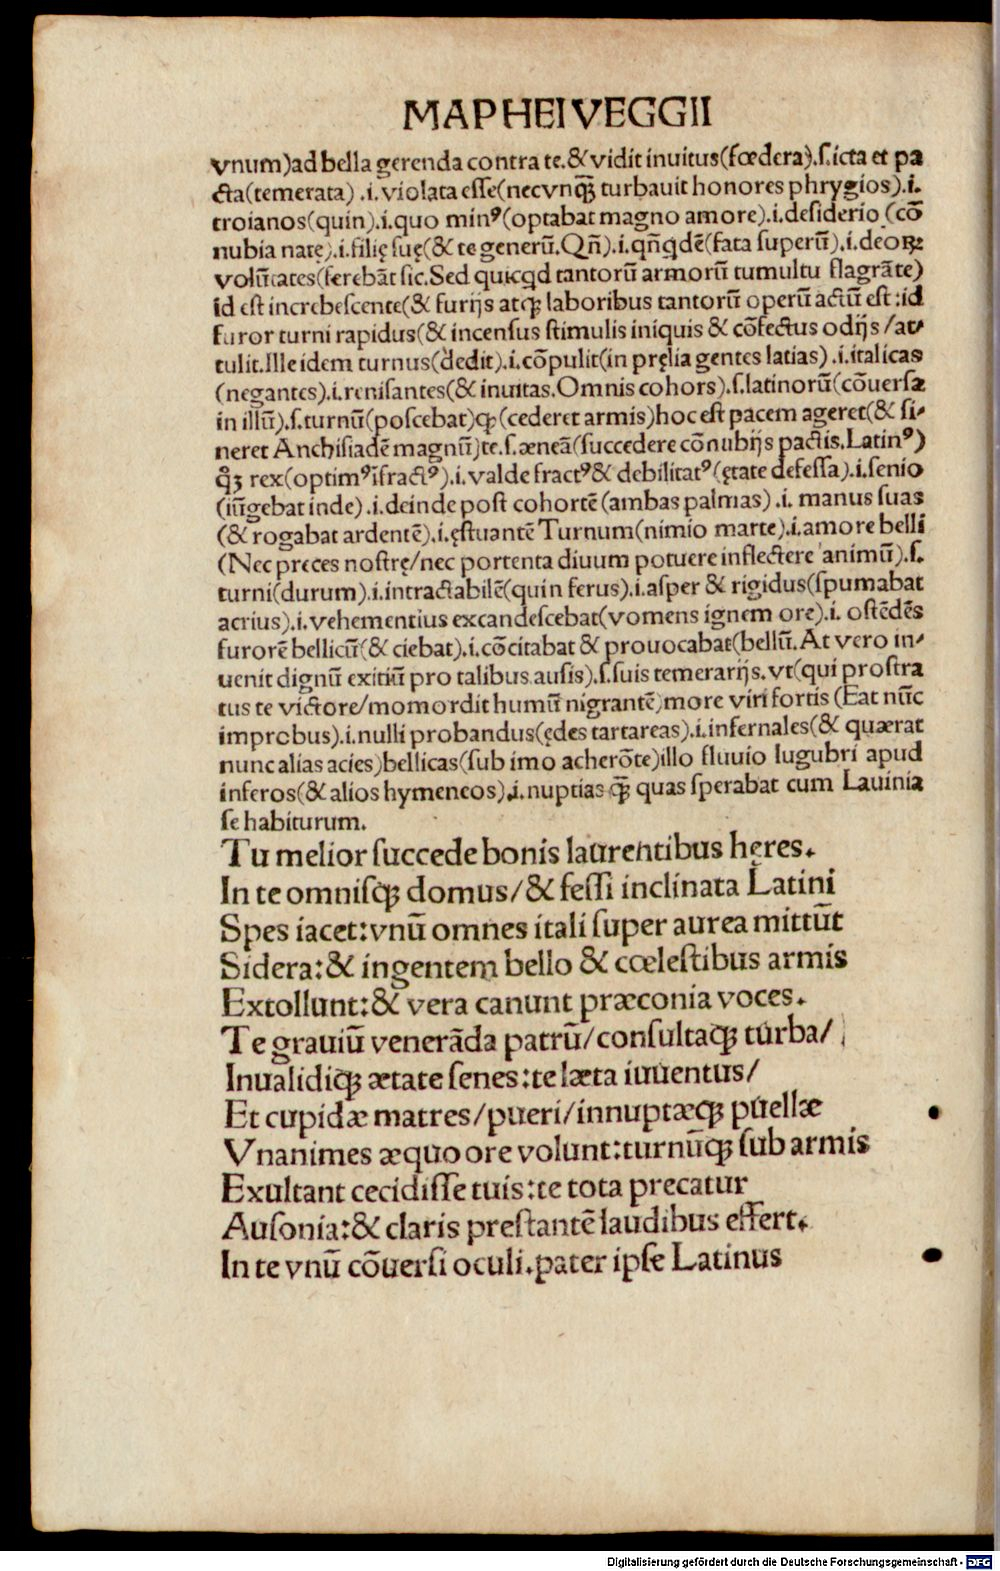 MAPHEI VEGGII
vnum)ad bella gerenda contra te.& vidit inuitus(fœdera).ſ.icta et pa
cta(temerata) .i.violata eſſe(necvnqꝫ̃ turbauit honores phrygios).i.
troianos(quin).i.quo minꝰ(optabat magno amore).i.deſiderio (cō
nubia natę).i.filię ſuę(& te generū.Qñ).i.qñqdē(fata ſuperū).i.deoꝝ:
volūtates(ferebāt ſic.Sed quicqd tantorū armorū tumultu flagrāte)
id eſt increbeſcente(& furijs atqꝫ laboribus tantorū operū actū eſt:id
furor turni rapidus(& incenſus ſtimulis iniquis & cōfectus odijs/at⸗
tulit.Ille idem turnus(dedit).i.cōpulit(in pręlia gentes latias) .i.italicas
(negantes).i.reniſantes(& inuitas.Omnis cohors).ſ.latinorū(cōuerſa
in illū).ſ.turnū(poſcebat)qꝫ(cederet armis)hoc eſt pacem ageret(& ſi⸗
neret Anchiſiadē magnū)te.ſ.æneā(ſuccedere cōnubijs pactis.Latinꝰ)
qꝫ̊ rex(optimꝰĩfractꝰ).i.valde fractꝰ& debilitatꝰ(ętate defeſſa).i.ſenio
(iūgebat inde) .i.deinde poſt cohortē(ambas palmas) .i. manus ſuas
(& rogabat ardentē).i.ęſtuantē Turnum(nimio marte).i.amore belli
(Nec preces noſtrę/nec portenta diuum potuere inflectere animū).ſ.
turni(durum).i.intractabilē(quin ferus).i.aſper & rigidus(ſpumabat
acrius).i.vehementius excandeſcebat(vomens ignem ore).i. oſtēdēs
furorē bellicū(& ciebat).i.cōcitabat & prouocabat(bellū.At vero in⸗
uenit dignū exitiū pro talibus auſis).ſ.ſuis temerarijs.vt(qui proſtra
tus te victore/momordit humū nigrantē)more viri fortis (Eat nūc
improbus).i.nulli probandus(ędes tartareas).i.infernales(& quærat
nunc alias acies)bellicas(ſub imo acherōte)illo fluuio lugubri apud
inferos(& alios hymeneos).i.nuptias qꝫ̃ quas ſperabat cum Lauinia
ſe habiturum.
Tu melior ſuccede bonis laurentibus hęres.
In te omniſqꝫ domus/& feſſi inclinata Latini
Spes iacet:vnū omnes itali ſuper aurea mittūt
Sidera:& ingentem bello & cœleſtibus armis
Extollunt:& vera canunt præconia voces.
Te grauiū venerāda patrū/conſultaqꝫ turba/
Inualidiqꝫ ætate ſenes:te læta iuuentus/
Et cupidæ matres/pueri/innuptæqꝫ puellæ
Vnanimes æquo ore volunt:turnūqꝫ ſub armis
Exultant cecidiſſe tuis:te tota precatur
Auſonia:& claris preſtantē laudibus effert.
In te vnū cōuerſi oculi.pater ipſe Latinus
Digitalisierung gefördert durch die Deutsche Forschungsgemeinschaft - DFG